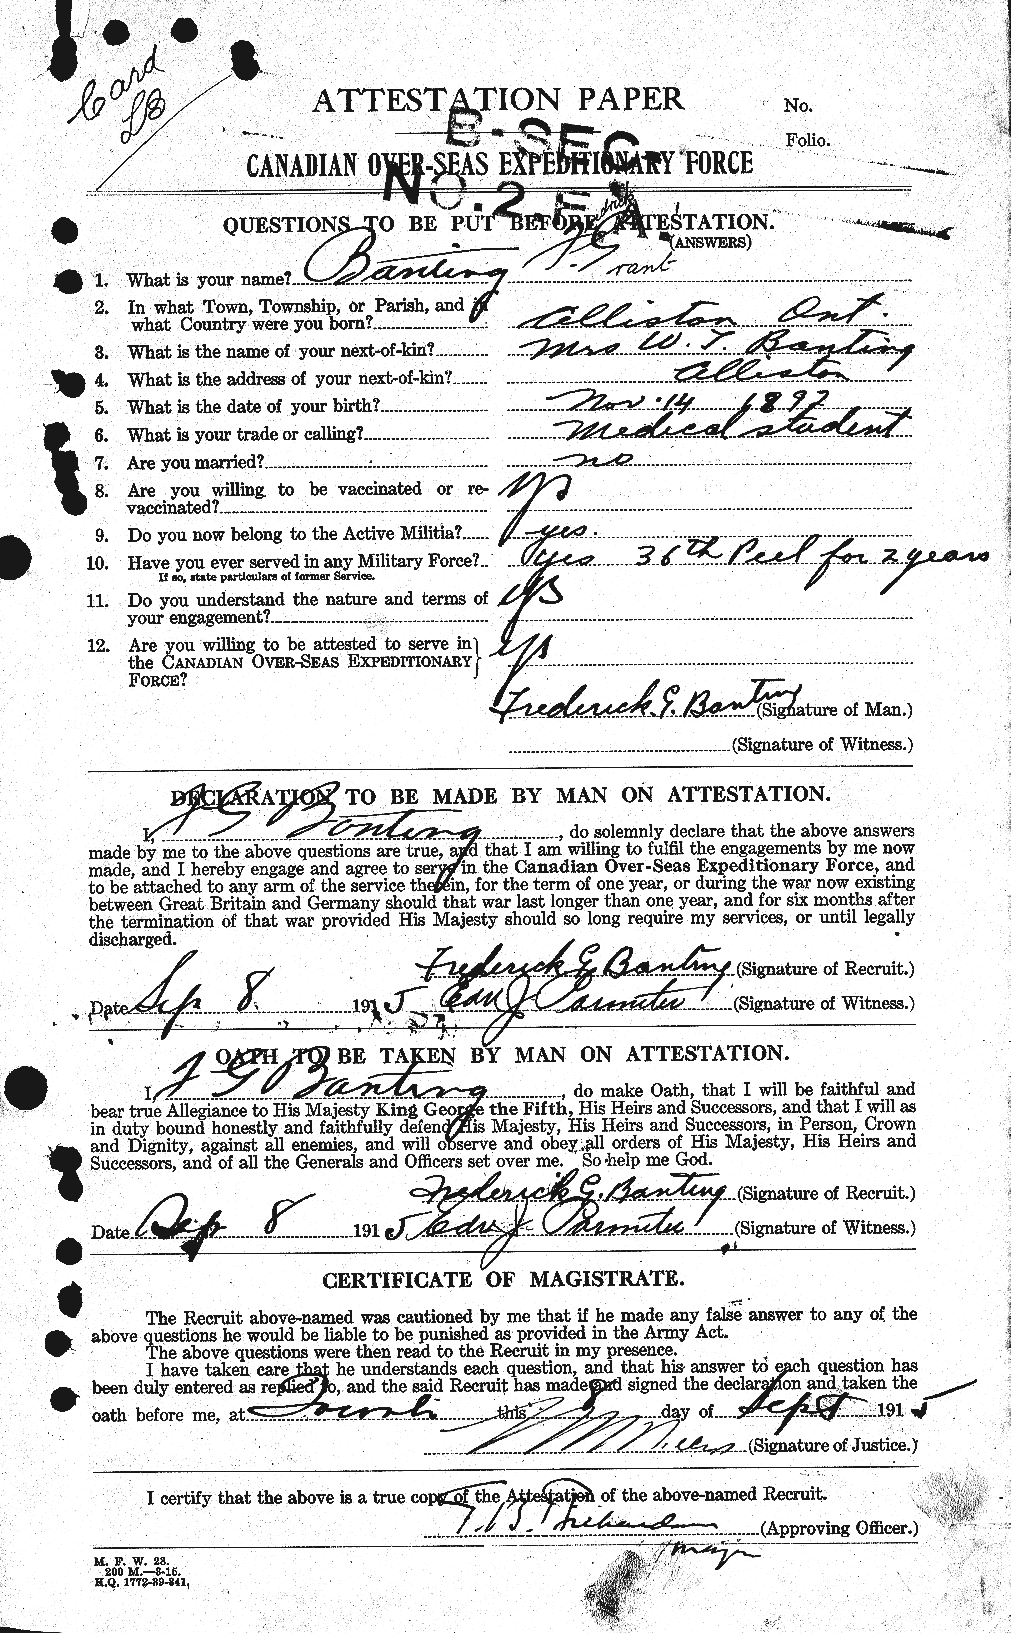 Card
LB
ATTESTATION PAPER
No.
Folio.
B-SEC.
CANADIAN OVER-SEAS EXPEDITIONARY FORCE
NO. 2. F.A.
QUESTIONS TO BE PUT BEFORE ATTESTATION.
(ANSWERS)
1. What is your name? Banting F. Grant
2. In what Town, Township, or Parish, and in
what Country were you born? Alliston Ont.
3. What is the name of your next-of-kin? Mrs W. T. Banting
4. What is the address of your next-of-kin? Alliston
5. What is the date of your birth? Nov. 14 1892
6. What is your trade or calling? Medical student
7. Are you married? no
8. Are you willing to be vaccinated or re-
vaccinated? yes
9. Do you now belong to the Active Militia? yes.
10. Have you ever served in any Military Force? yes 36th Peel for 2 years
If so, state particulars of former Service.
11. Do you understand the nature and terms of
your engagement? yes
12. Are you willing to be attested to serve in
the CANADIAN OVER-SEAS EXPEDITIONARY
FORCE? yes
Frederick. G. Banting (Signature of Man.)
(Signature of Witness.)
DECLARATION TO BE MADE BY MAN ON ATTESTATION.
I, F G Banting, do solemnly declare that the above answers
made by me to the above questions are true, and that I am willing to fulfil the engagements by me now
made, and I hereby engage and agree to serve in the Canadian Over-Seas Expeditionary Force, and
to be attached to any arm of the service therein, for the term of one year, or during the war now existing
between Great Britain and Germany should that war last longer than one year, and for six months after
the termination of that war provided His Majesty should so long require my services, or until legally
discharged.
Frederick G. Banting (Signature of Recruit.)
Date Sep 8. 1915 Edw J Parmiter (Signature of Witness.)
OATH TO BE TAKEN BY MAN ON ATTESTATION.
I, F G Banting, do make Oath, that I will be faithful and
bear true Allegiance to His Majesty King George the Fifth, His Heirs and Successors, and that I will as
in duty bound honestly and faithfully defend His Majesty, His Heirs and Successors, in Person, Crown
and Dignity, against all enemies, and will observe and obey all orders of His Majesty, His Heirs and
Successors, and of all the Generals and Officers set over me. So help me God.
Frederick G. Banting (Signature of Recruit.)
Date Sep 8 1915 Edw J Parmiter (Signature of Witness.)
CERTIFICATE OF MAGISTRATE.
The Recruit above-named was cautioned by me that if he made any false answer to any of the
above questions he would be liable to be punished as provided in the Army Act.
The above questions were then read to the Recruit in my presence.
I have taken care that he understands each question, and that his answer to each question has
been duly entered as replied to, and the said Recruit has made and signed the declaration and taken the
oath before me, at Toronto this 8 day of Sept 1915
(Signature of Justice.)
I certify that the above is a true copy of the Attestation of the above-named Recruit.
T. B. Richardson (Approving Officer.)
Major
M. F. W. 23.
200 M.—8-15.
H.Q. 1772-39-841.